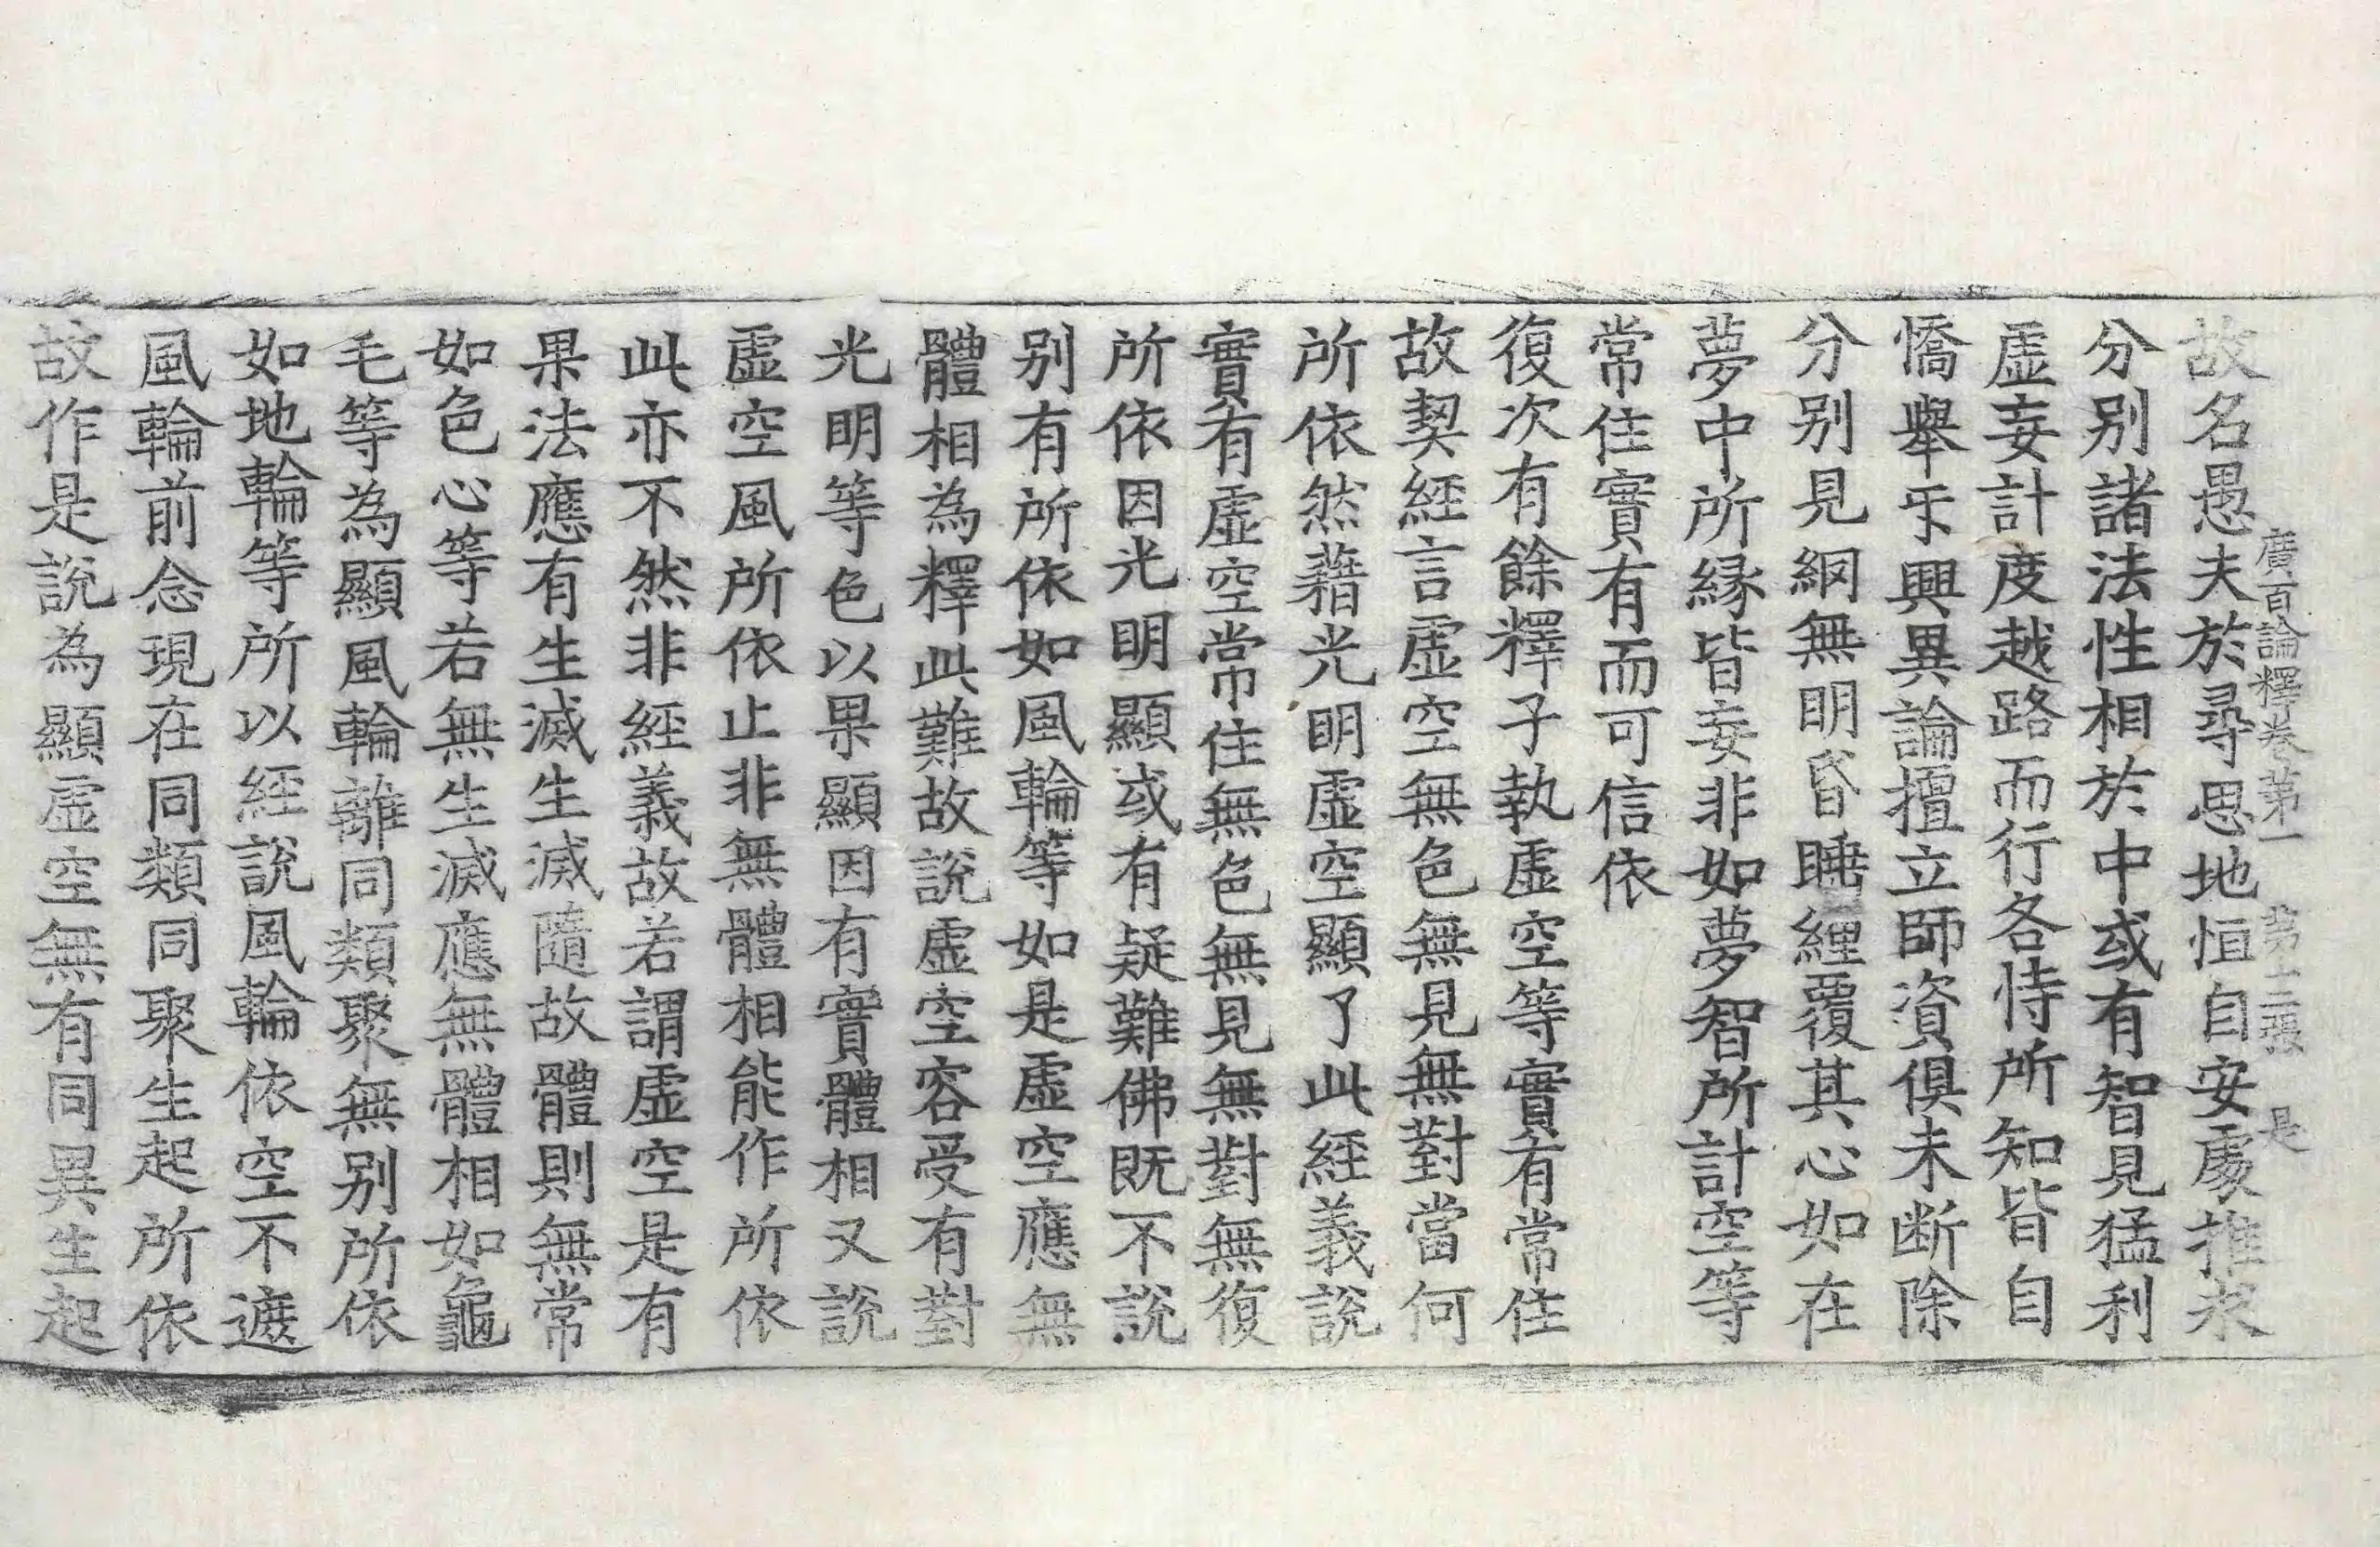 廣百論釋卷第一 第十三張 是
故名愚夫於尋思地恒自安處推求
分别諸法性相於中或有智見猛利
虛妄計度越路而行各恃所知皆自
憍舉乎興異論擅立師資俱未断除
分别見網無明昏睡纏覆其心如在
夢中所縁皆妄非如夢智所計空等
常住實有而可信依
復次有餘釋子執虛空等實有常住
故契經言虛空無色無見無對當何
所依然藉光明虛空顯了此經義說
實有虛空常住無色無見無對無復
所依因光明顯或有疑難佛既不說
别有所依如風輪等如是虛空應無
體相為釋此難故說虛空容受有對
光明等色以果顯因有實體相又說
虛空風所依止非無體相能作所依
此亦不然非經義故若謂虛空是有
果法應有生滅生滅隨故體則無常
如色心等若無生滅應無體相如龜
毛等為顯風輪離同類聚無别所依
如地輪等所以經說風輪依空不遮
風輪前念現在同類同聚生起所依
故作是說為顯虛空無有同異生起